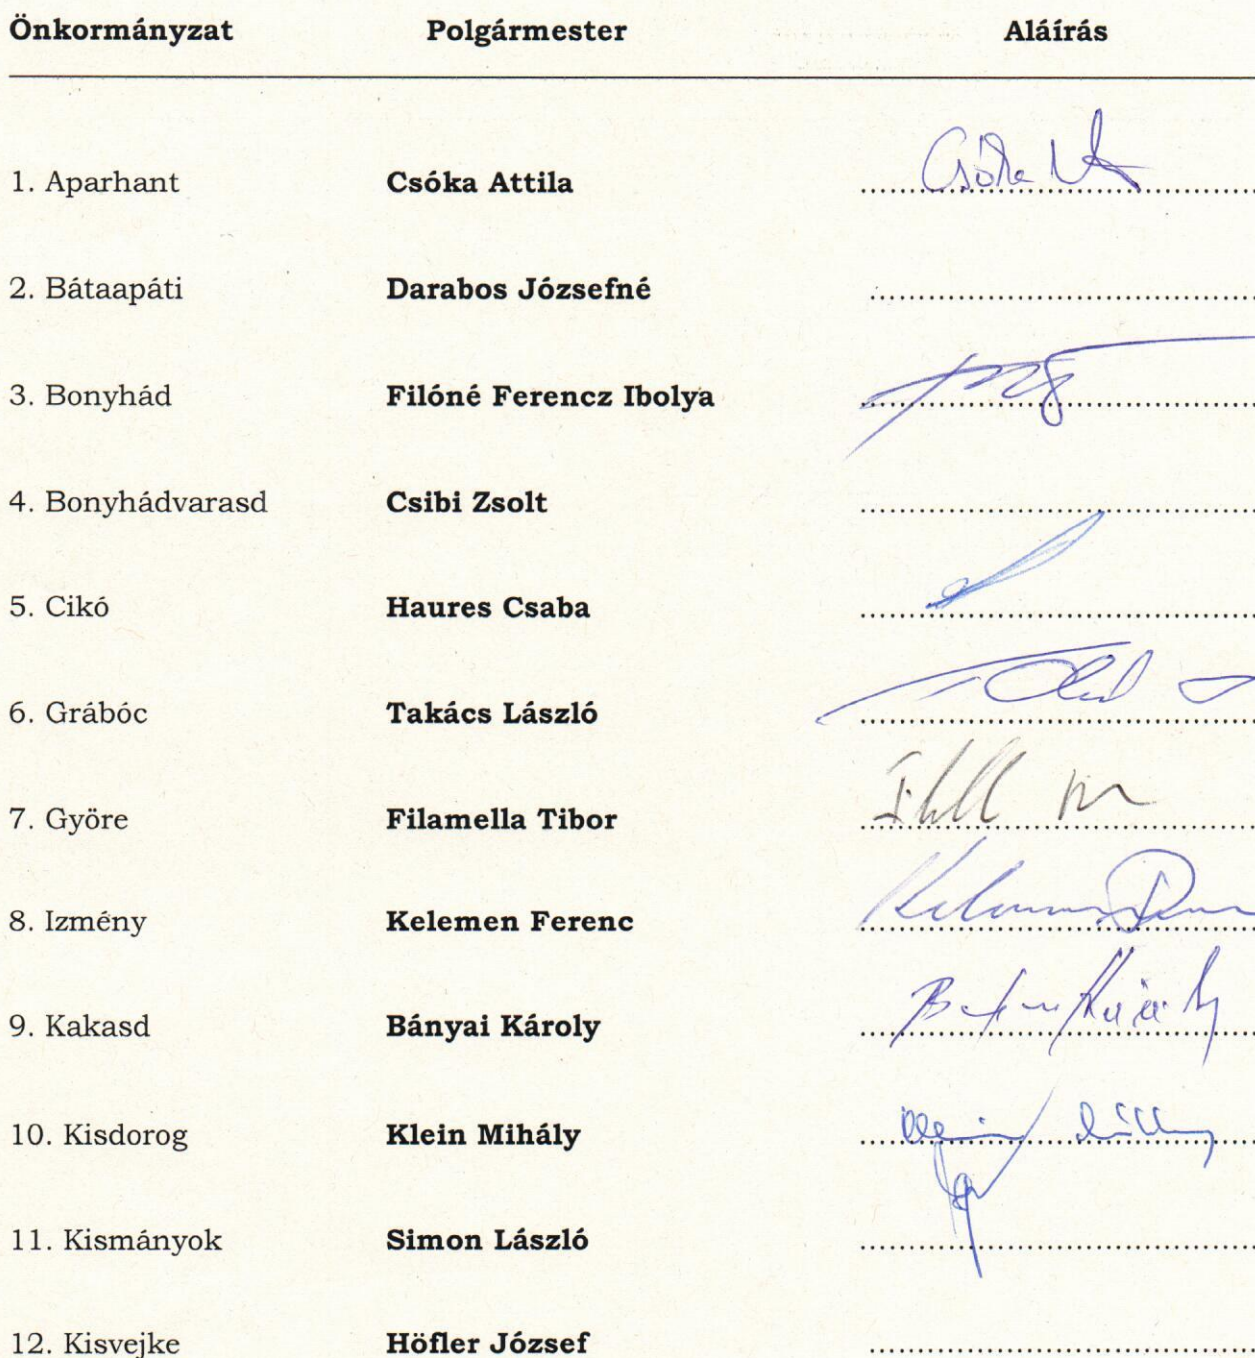 Önkormányzat Polgármester Aláírás
1. Aparhant Csóka Attila Csóka
2. Bátaapáti Darabos Józsefné
3. Bonyhád Filóné Ferencz Ibolya
4. Bonyhádvarasd Csibi Zsolt
5. Cikó Haures Csaba
6. Grábóc Takács László
7. Györe Filamella Tibor
8. Izmény Kelemen Ferenc Kelemen
9. Kakasd Bányai Károly Károly
10. Kisdorog Klein Mihály
11. Kismányok Simon László
12. Kisvejke Höfler József